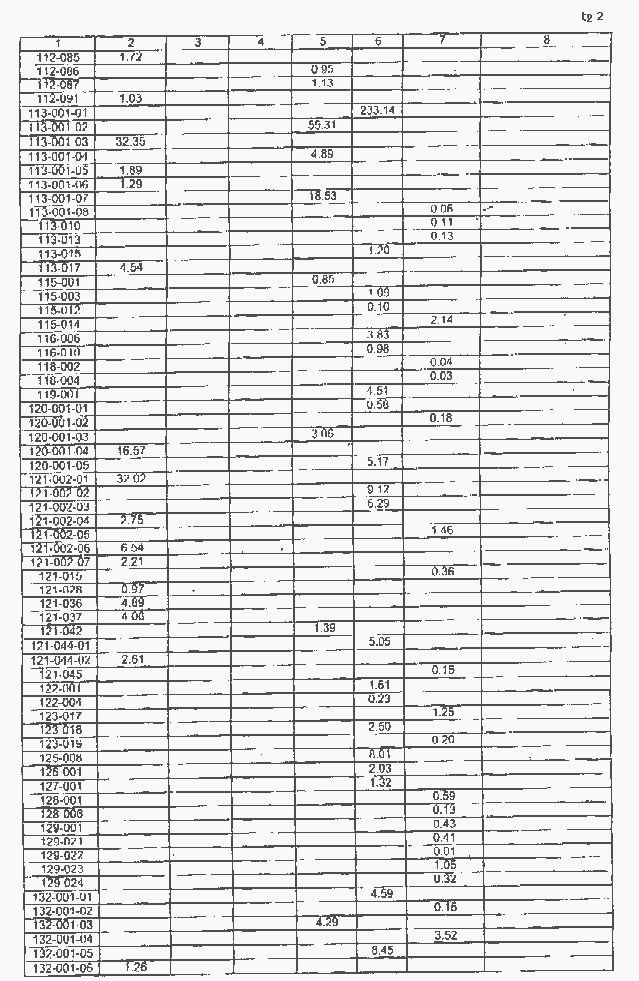 tg 2
1 2 3 4 5 6 7 8
112-085 1.72
112-086 0.95
112-087 1.13
112-091 1.03
113-001-01 233.14
113-001-02 55.31
113-001-03 32.35
113-001-04 4.89
113-001-05 1.89
113-001-06 1.29
113-001-07 18.53
113-001-08 0.06
113-010 0.11
113-013 0.13
113-015 1.20
113-017 4.54
115-001 0.85
115-003 1.09
115-012 0.10
115-014 2.14
116-006 3.83
116-010 0.98
118-002 0.04
118-004 0.03
119-001 4.51
120-001-01 0.58
120-001-02 0.18
120-001-03 3.06
120-001-04 16.57
120-001-05 5.17
121-002-01 32.02
121-002-02 9.12
121-002-03 6.29
121-002-04 2.75
121-002-05 1.46
121-002-06 6.54
121-002-07 2.21
121-015 0.36
121-028 0.97
121-036 4.89
121-037 4.06
121-042 1.39
121-044-01 5.05
121-044-02 2.61
121-045 0.15
122-001 1.61
122-004 0.23
123-017 1.25
123-018 2.50
123-019 0.20
125-008 8.01
126-001 2.03
127-001 1.32
128-001 0.59
128-006 0.13
129-001 0.43
129-021 0.41
129-022 0.01
129-023 1.05
129-024 0.32
132-001-01 4.59
132-001-02 0.16
132-001-03 4.29
132-001-04 3.52
132-001-05 8.45
132-001-06 1.26